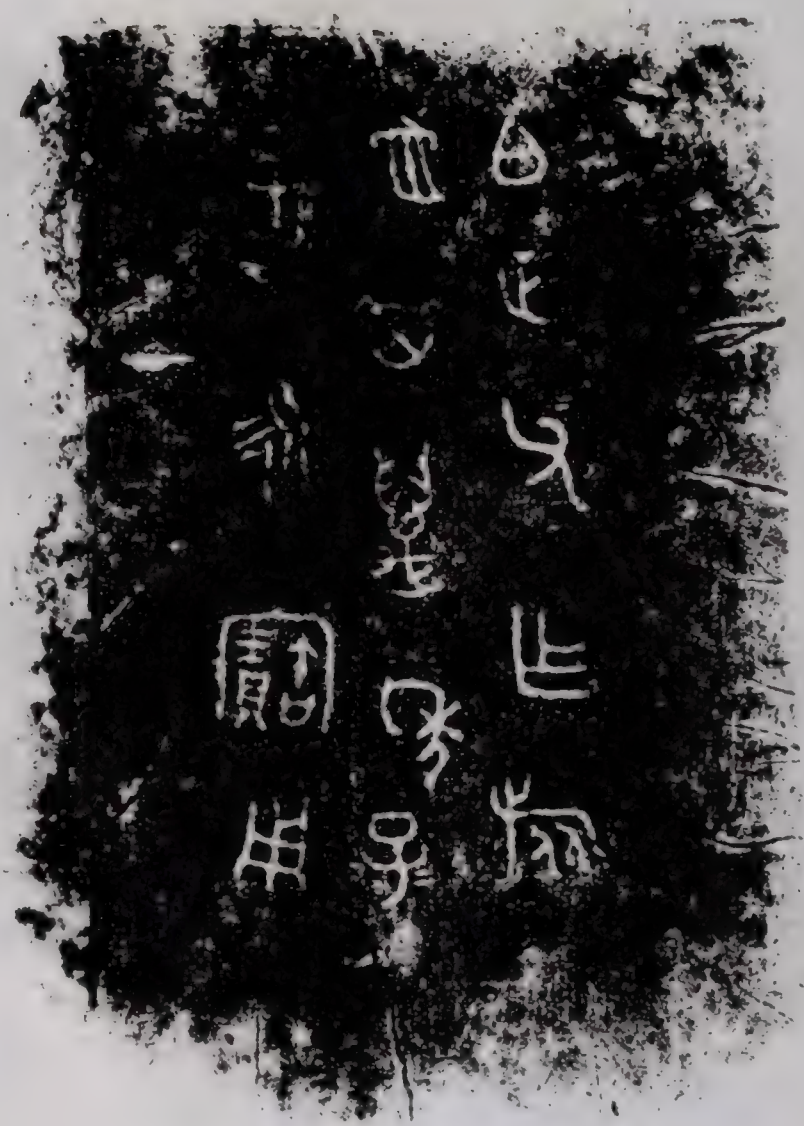 白父乍旅
其萬年子
孫永寶用